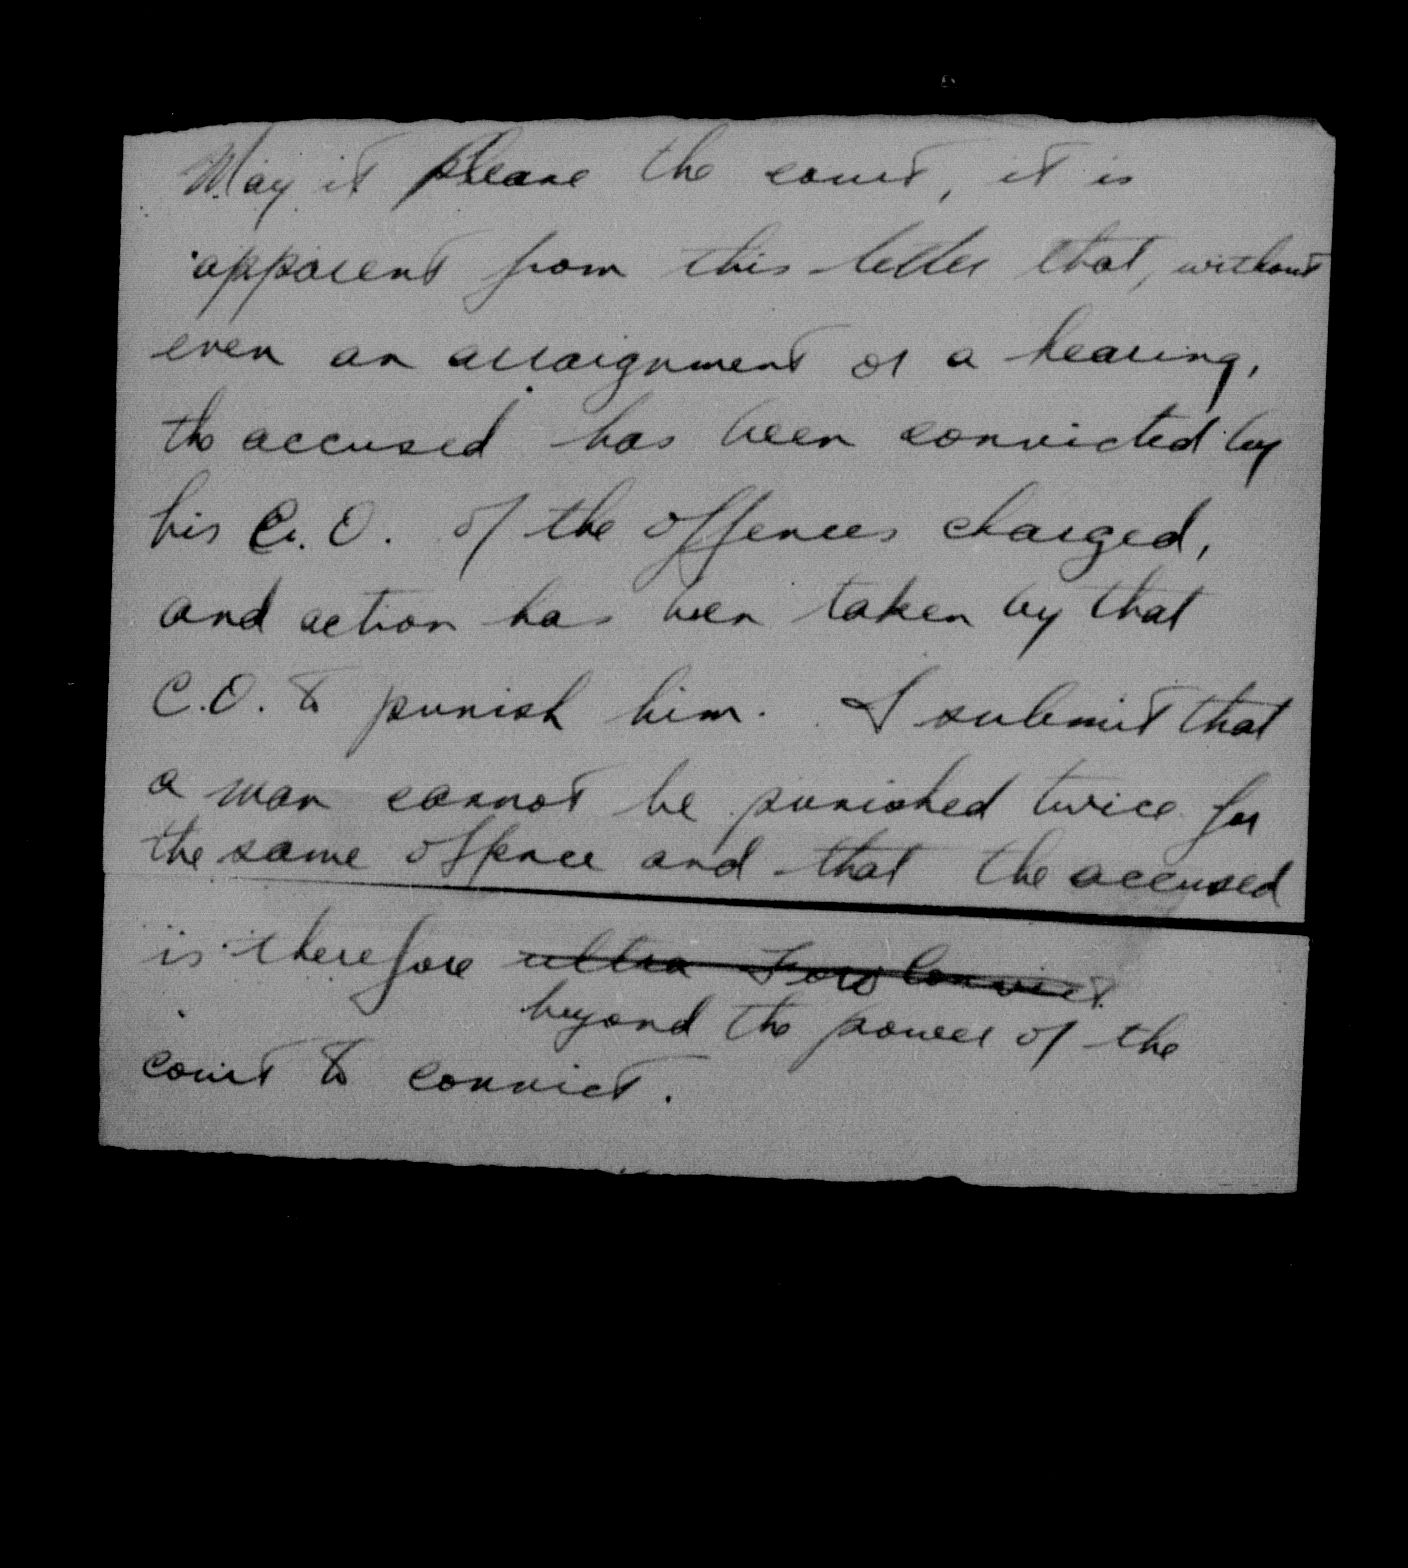 May it please the court, it is
apparent from this letter that, without
even an arraignment or a hearing,
the accused has been convicted by
his C.O. of the offences charged,
and action has been taken by that
C.O. to punish him. I submit that
a man cannot be punished twice for
the same offence and that the accused
is therefore ultra
beyond the power of the
court to convict.